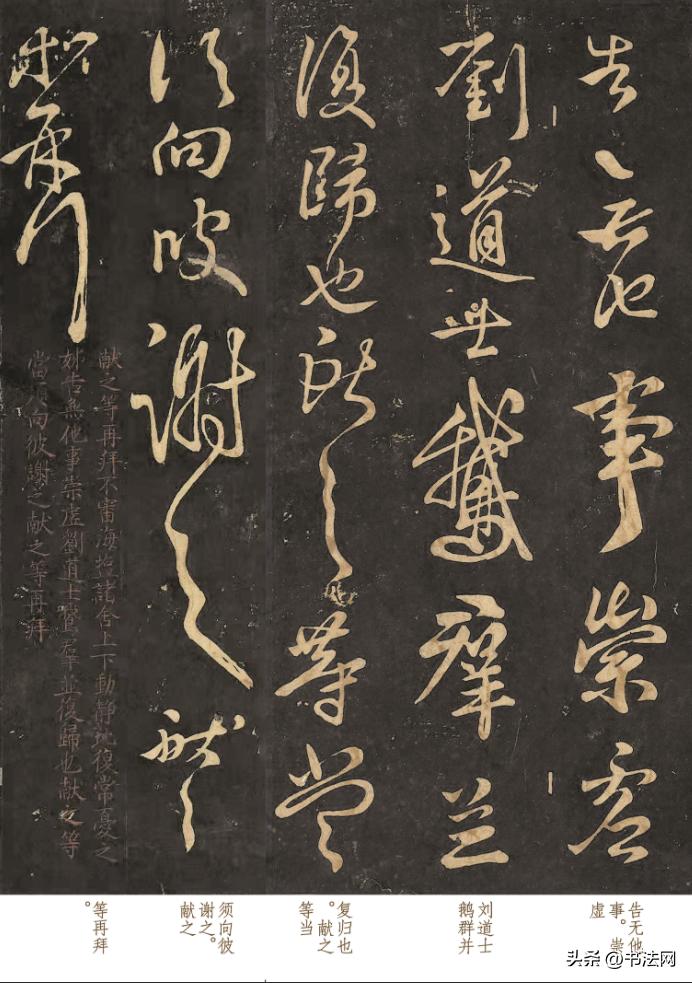 告無他事崇虛
劉道士鵝羣並
復歸也献之等當
須向彼謝之献之
等再拜
献之等再拜不審海塩諸舍上下動静比復常憂之
姊告無他事崇虛劉道士鵞羣並復歸也献之等
當須向彼謝之献之等再拜
告无他
事。崇
虚
刘道士
鹅群并
复归也
。献之
等当
须向彼
谢之。
献之
等再拜
。
头条 @书法网